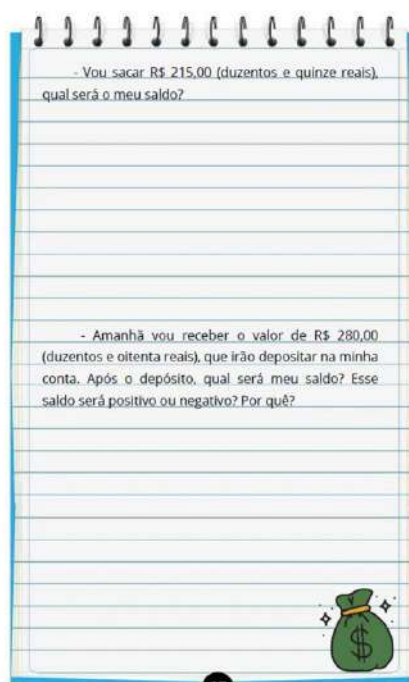 - Vou sacar R$ 215,00 (duzentos e quinze reais),
qual será o meu saldo?
- Amanhã vou receber o valor de R$ 280,00
(duzentos e oitenta reais), que irão depositar na minha
conta. Após o depósito, qual será meu saldo? Esse
saldo será positivo ou negativo? Por quê?
$